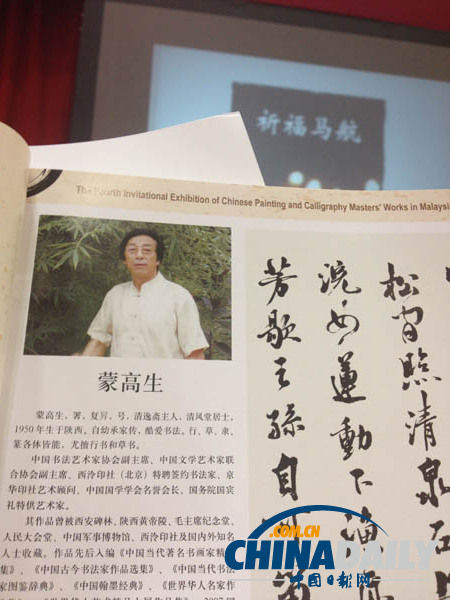 祈福马航
The Fourth Invitational Exhibition of Chinese Painting and Calligraphy Masters' Works in Malaysi
蒙高生
蒙高生，署，复昇，号，清逸斋主人，清风堂居士，
1950年生于陕西，自幼承家传，酷爱书法，行、草、隶、
篆各体皆能，尤擅行书和草书。
中国书法艺术家协会副主席、中国文学艺术家联
合协会副主席、西泠印社（北京）特聘签约书法家、京
华印社艺术顾问、中国国学学会名誉会长、国务院国宾
礼特供艺术家。
其作品曾被西安碑林、陕西黄帝陵、毛主席纪念堂、
人民大会堂、中国军事博物馆、西泠印社及国内外知名
人士收藏。作品先后入编《中国当代著名书画家精
集》、《中国古今书法家作品选集》、《中国当代书法
家图鉴辞典》、《中国翰墨经典》、《世界华人名家作
松间照清泉石
浣女莲动下渔
芳歇王孙自
.COM.CN
CHINADAILY
中国日报网